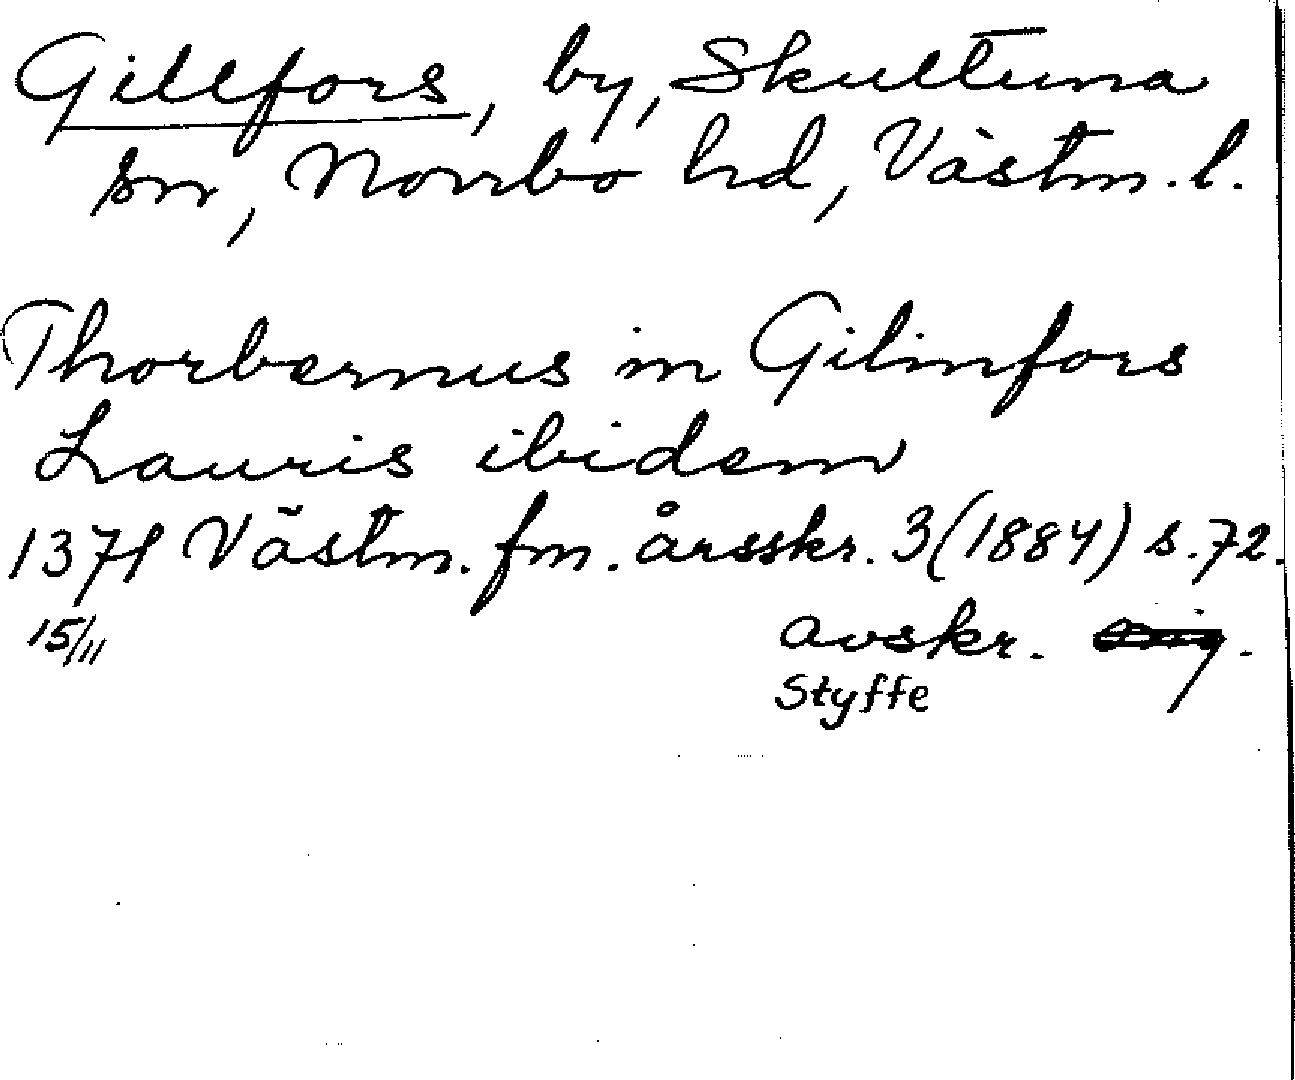 Gillfors, by, Skultuna
sn, Norrbo hd, Västm. l.
Thorbernus in Gilinfors
Lauris ibidem
1371 Västm. fm. årsskr. 3 (1884) s. 72.
15/11 avskr.
Styffe